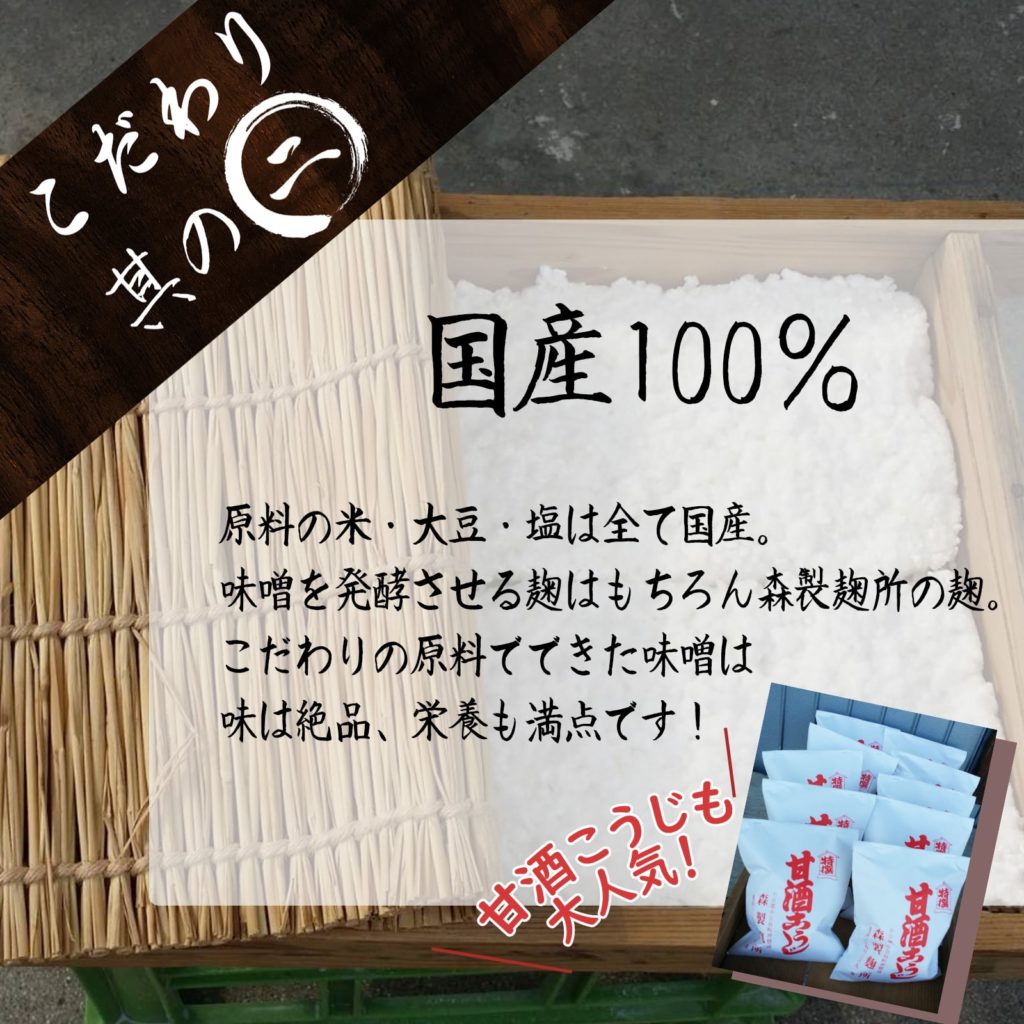 こだわり
其の二
国産100%
原料の米・大豆・塩は全て国産。
味噌を発酵させる麹はもちろん森製麹所の麹。
こだわりの原料でできた味噌は
味は絶品、栄養も満点です！
甘酒こうじも
大人気！
特撰
甘酒こうじ
森製麹所
特撰
甘酒こうじ
森製麹所